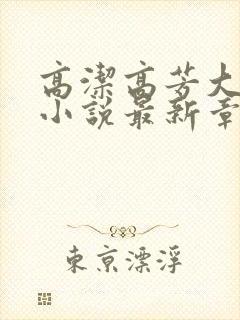 高潔高芳大
小說最新章
東京漂浮